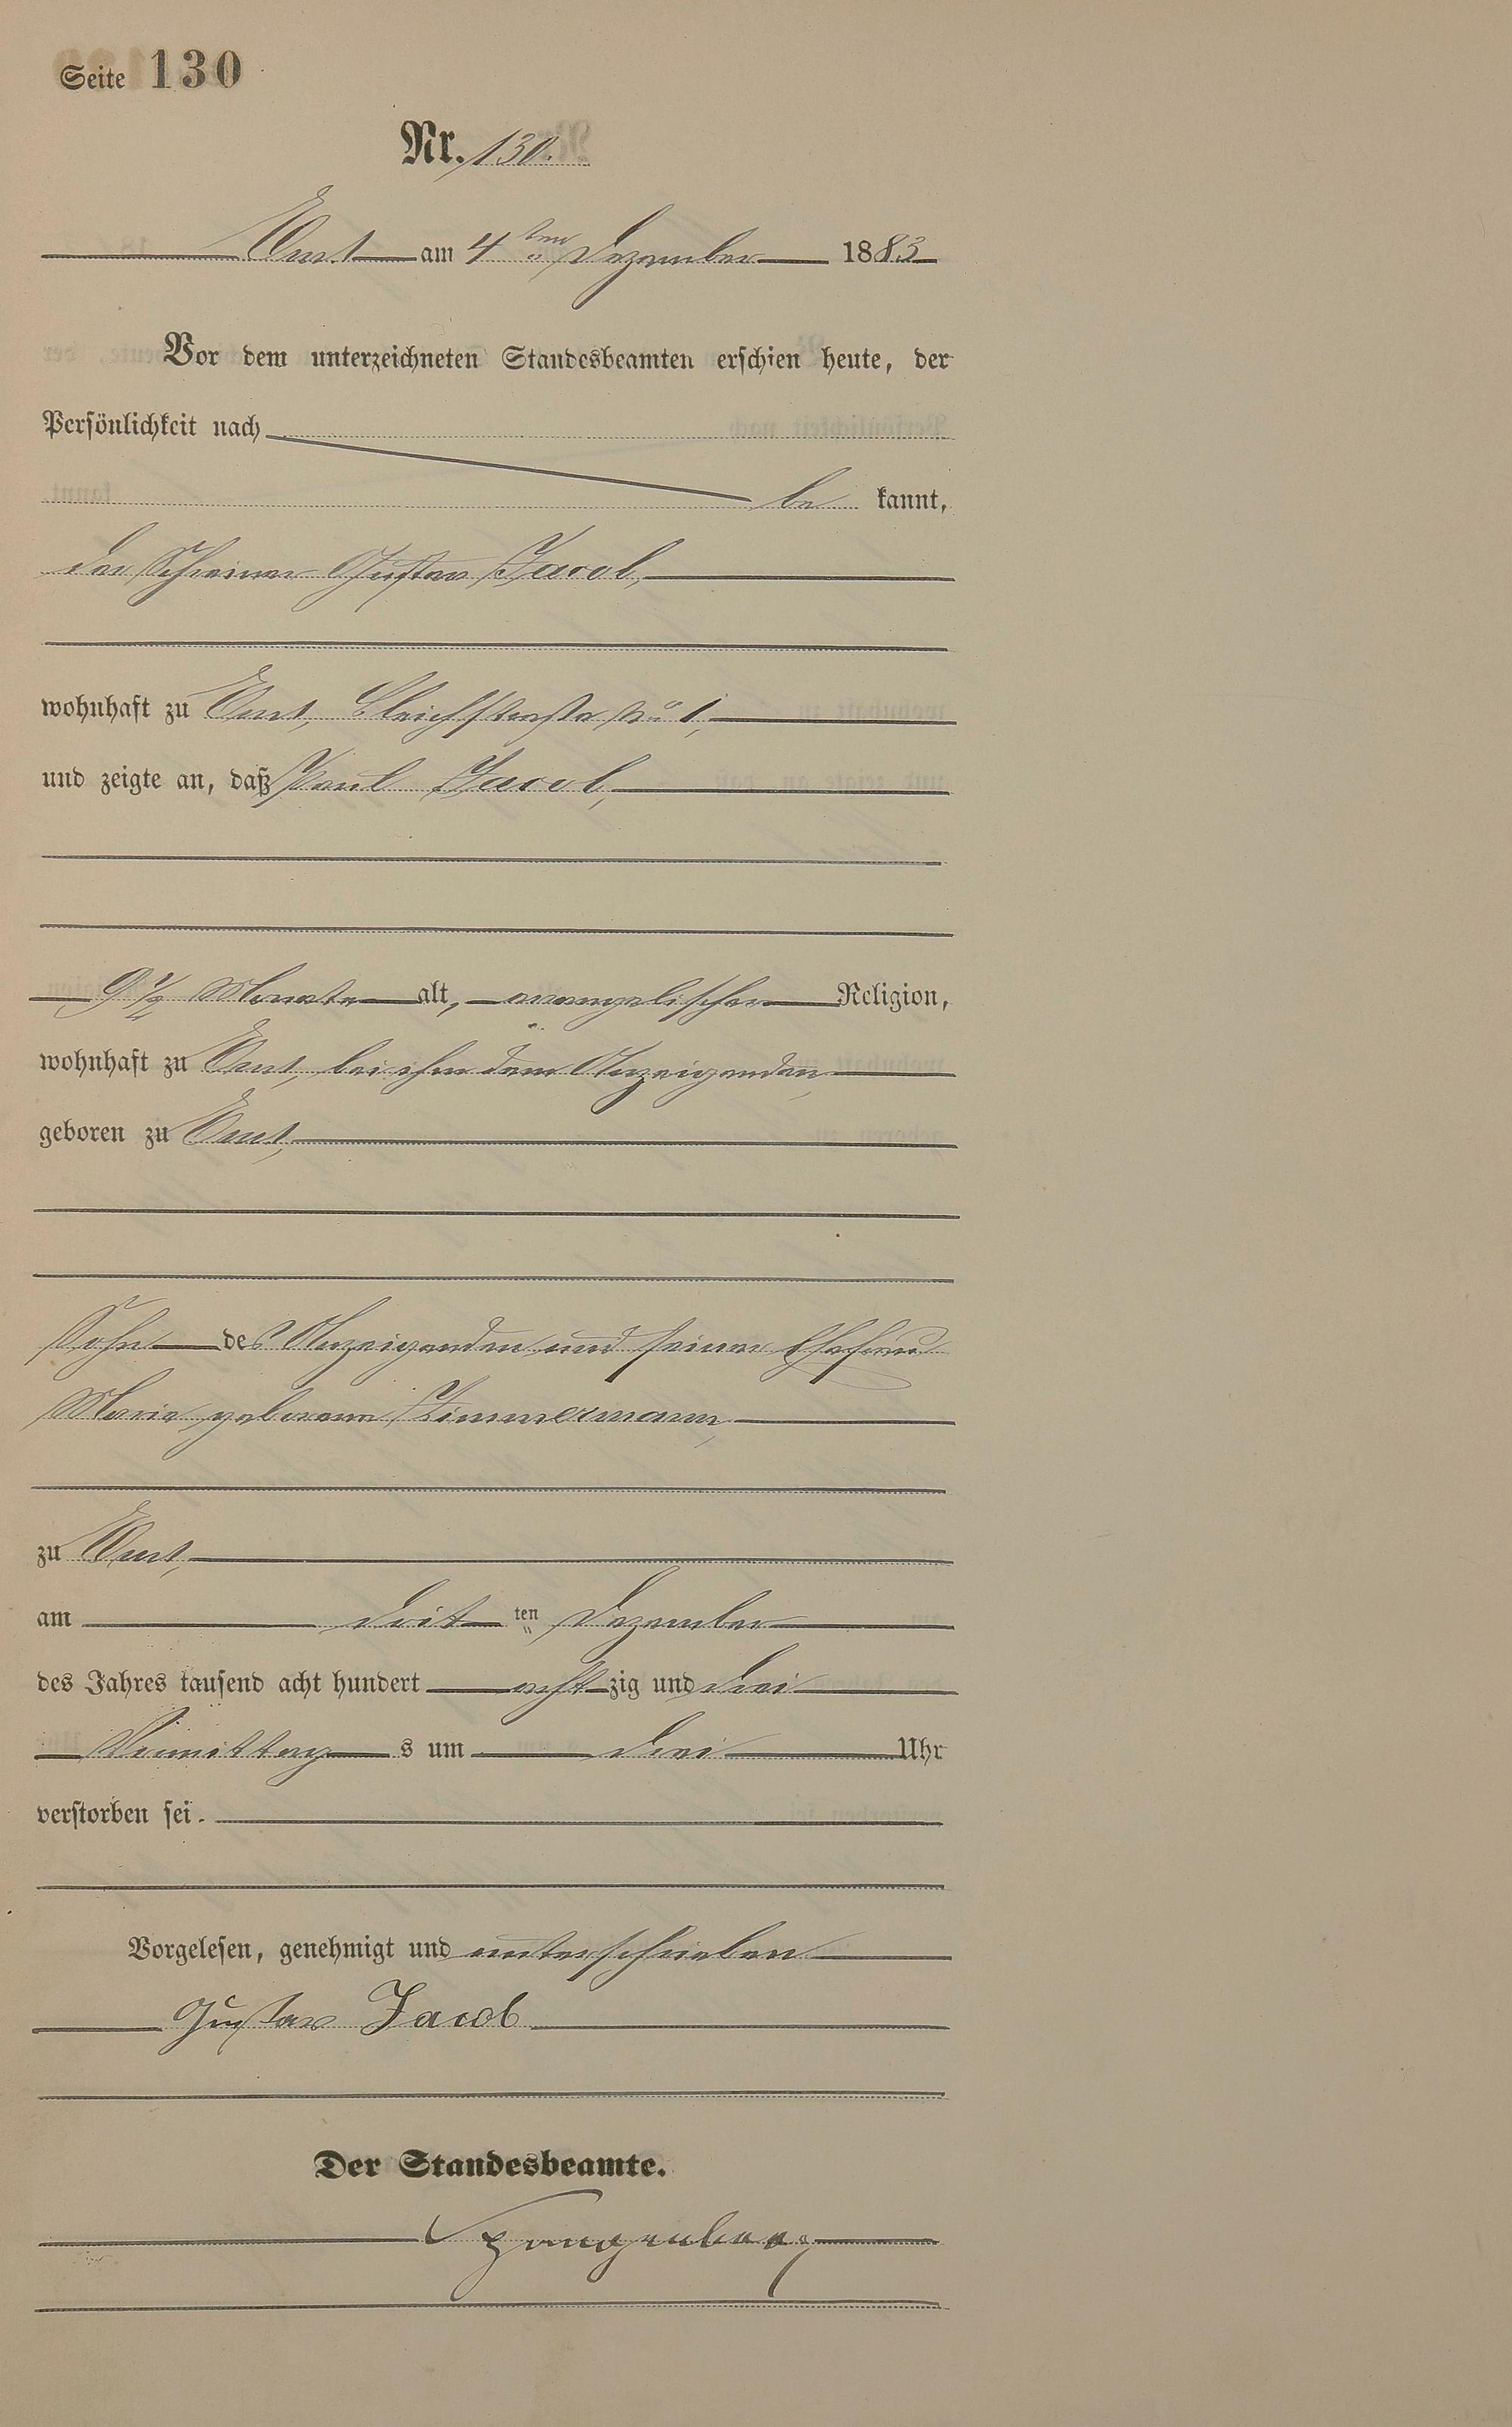 Seite 130
Nr. 130.
Ems am 4ten Dezember 1883
Vor dem unterzeichneten Standesbeamten erschien heute, der
Persönlichkeit nach
be kannt,
der Schreiner Gustav Jacob,
wohnhaft zu Ems, Bleichstraße No 1,
und zeigte an, daß Paul Jacob,
9 1/2 Monate alt, evangelischer Religion,
wohnhaft zu Ems, bei ihm dem Anzeigenden,
geboren zu Ems,
Sohn des Anzeigenden und seiner Ehefrau
Marie geborene Zimmermann,
zu Ems,
am drit ten Dezember
des Jahres tausend acht hundert acht zig und drei
Vormittag s um drei Uhr
verstorben sei.
Vorgelesen, genehmigt und unterschrieben
Gustav Jacob
Der Standesbeamte.
Spangenberg